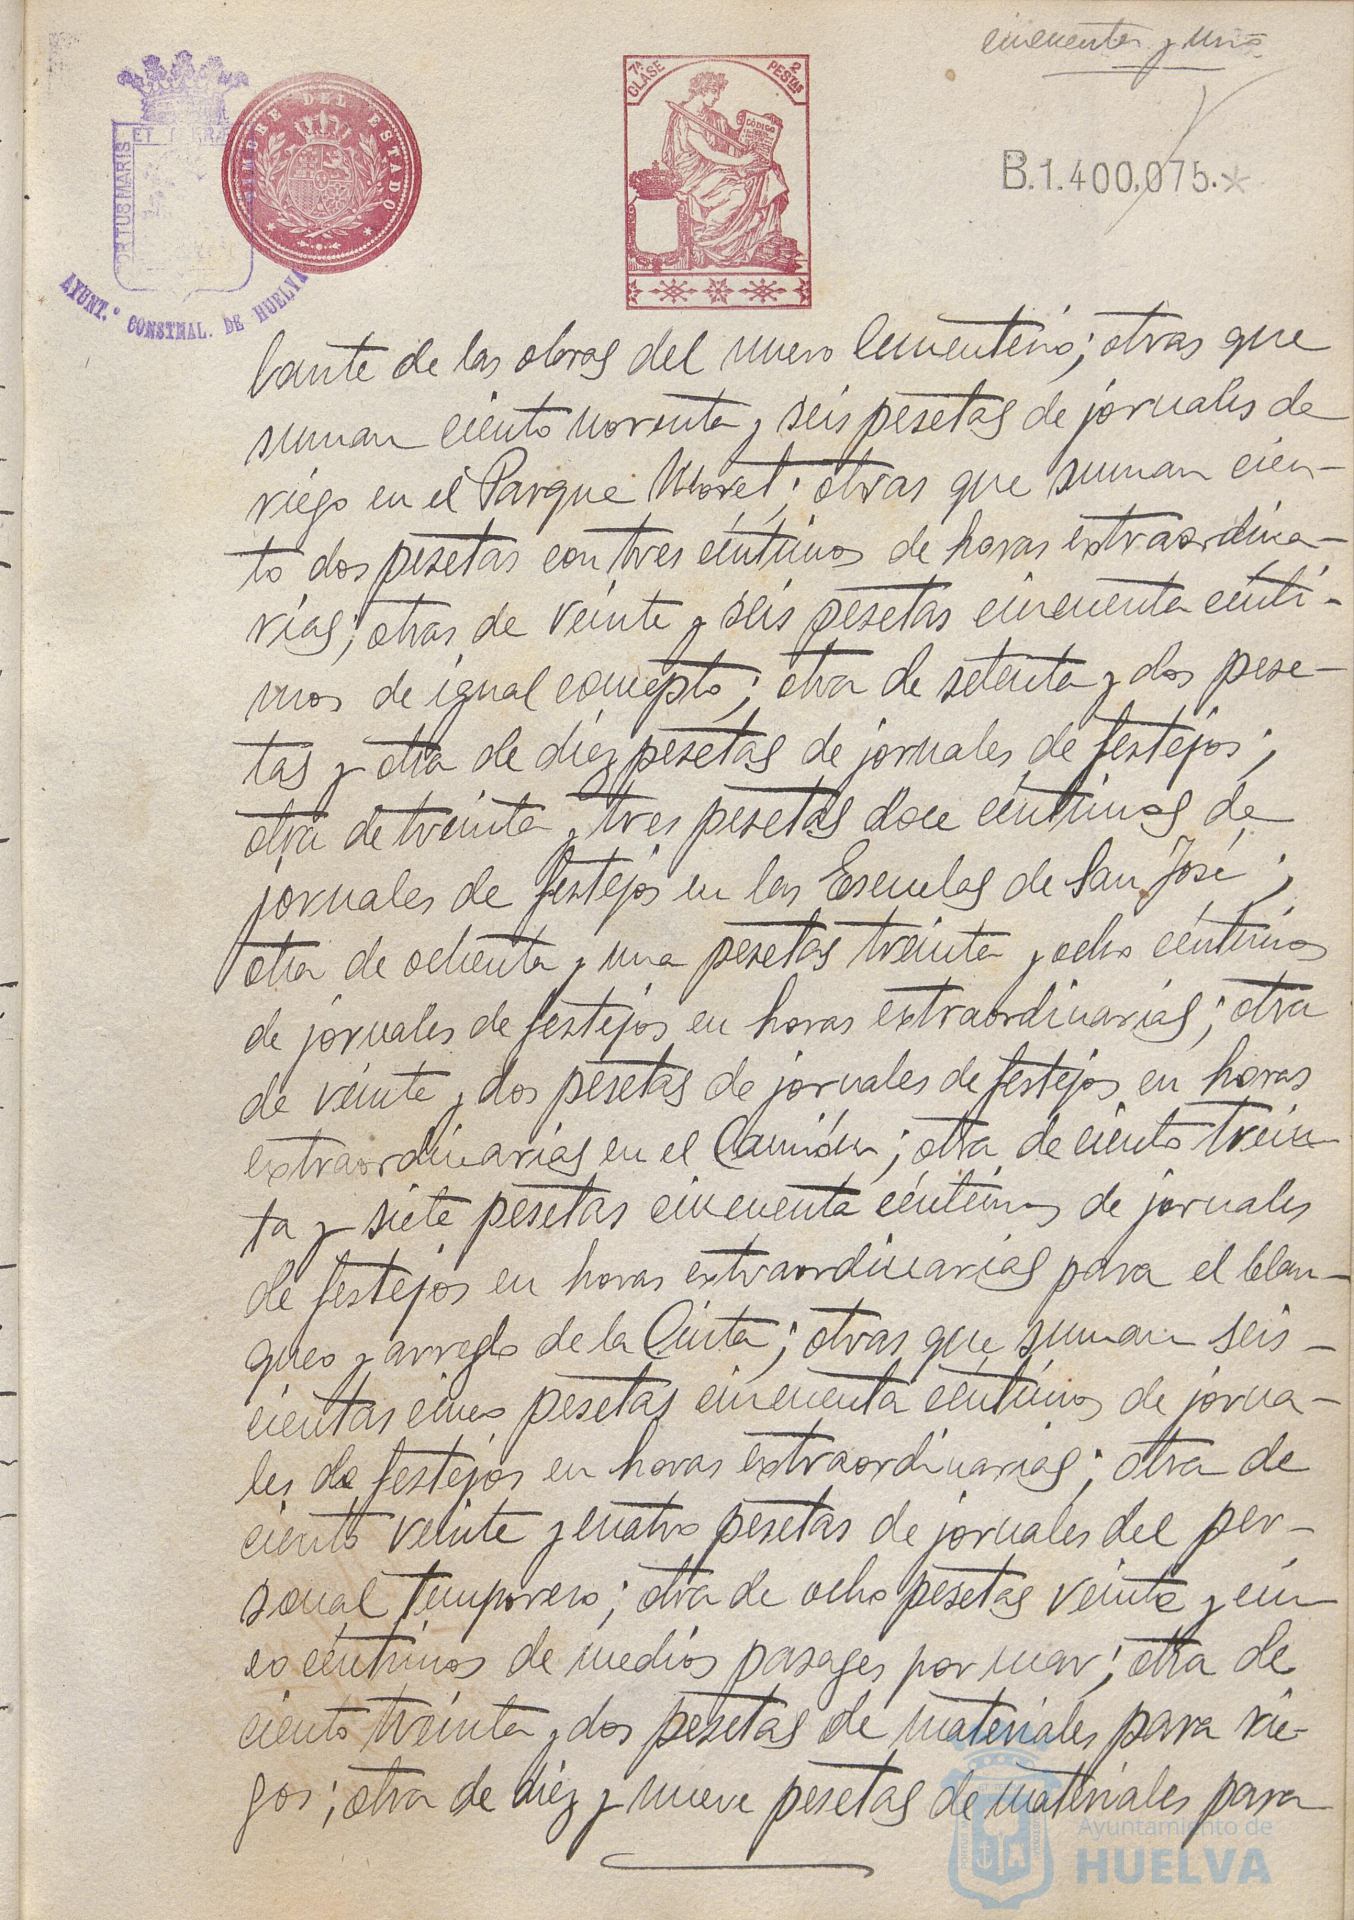 cincuenta y uno
7ª CLASE
2 PESTAS
CÓDIGO
TIMBRE DEL ESTADO
PORTUS MARIS
ET
AYUNT.º CONSTNAL. DE HUELVA
B.1.400,075.*
lante de las obras del nuevo Cementerio; otras que
suman ciento noventa y seis pesetas de jornales de
riego en el Parque Moret; otras que suman cien-
to dos pesetas con tres céntimos de horas extraordina-
rias; otras de veinte y seis pesetas cincuenta cénti-
mos de igual concepto; otra de setenta y dos pese-
tas y otra de diez pesetas de jornales de festejos;
otra de treinta y tres pesetas doce céntimos de
jornales de festejos en las Escuelas de San José;
otra de ochenta y una pesetas treinta y ocho céntimos
de jornales de festejos en horas extraordinarias; otra
de veinte y dos pesetas de jornales de festejos en horas
extraordinarias en el Camión; otra de ciento trein
ta y siete pesetas cincuenta céntimos de jornales
de festejos en horas extraordinarias para el blan-
queo y arreglo de la Cinta; otras que suman seis-
cientas cinco pesetas cincuenta céntimos de jorna-
les de festejos en horas extraordinarias; otra de
ciento veinte y cuatro pesetas de jornales del per-
sonal temporero; otra de ocho pesetas veinte y cin
co céntimos de medios pasages por mar; otra de
ciento treinta y dos pesetas de materiales para rie-
gos; otra de diez y nueve pesetas de materiales para
Ayuntamiento de
HUELVA